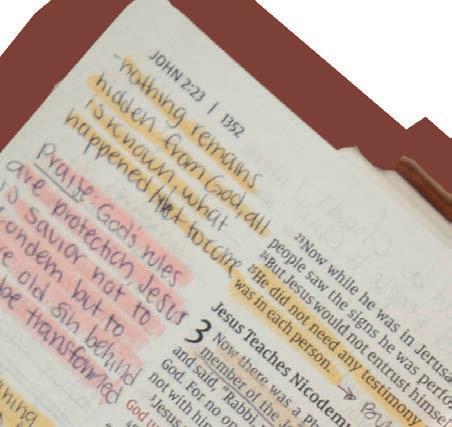 JOHN 2:23 | 1352
-nothing remains
hidden from God, all
is known, what
happened + yet to come
Praise: God's rules
are protection, Jesus
is savior not to
condem but to
old sin behind
be transformed
23Now while he was in Jerusa
people saw the signs he was perfo
24But Jesus would not entrust himse
25He did not need any testimony
was in each person.
Jesus Teaches Nicodem
3 Now there was a Ph
member of the J
and said, "Rabbi,
God. For no on
not with him
Jesus
God